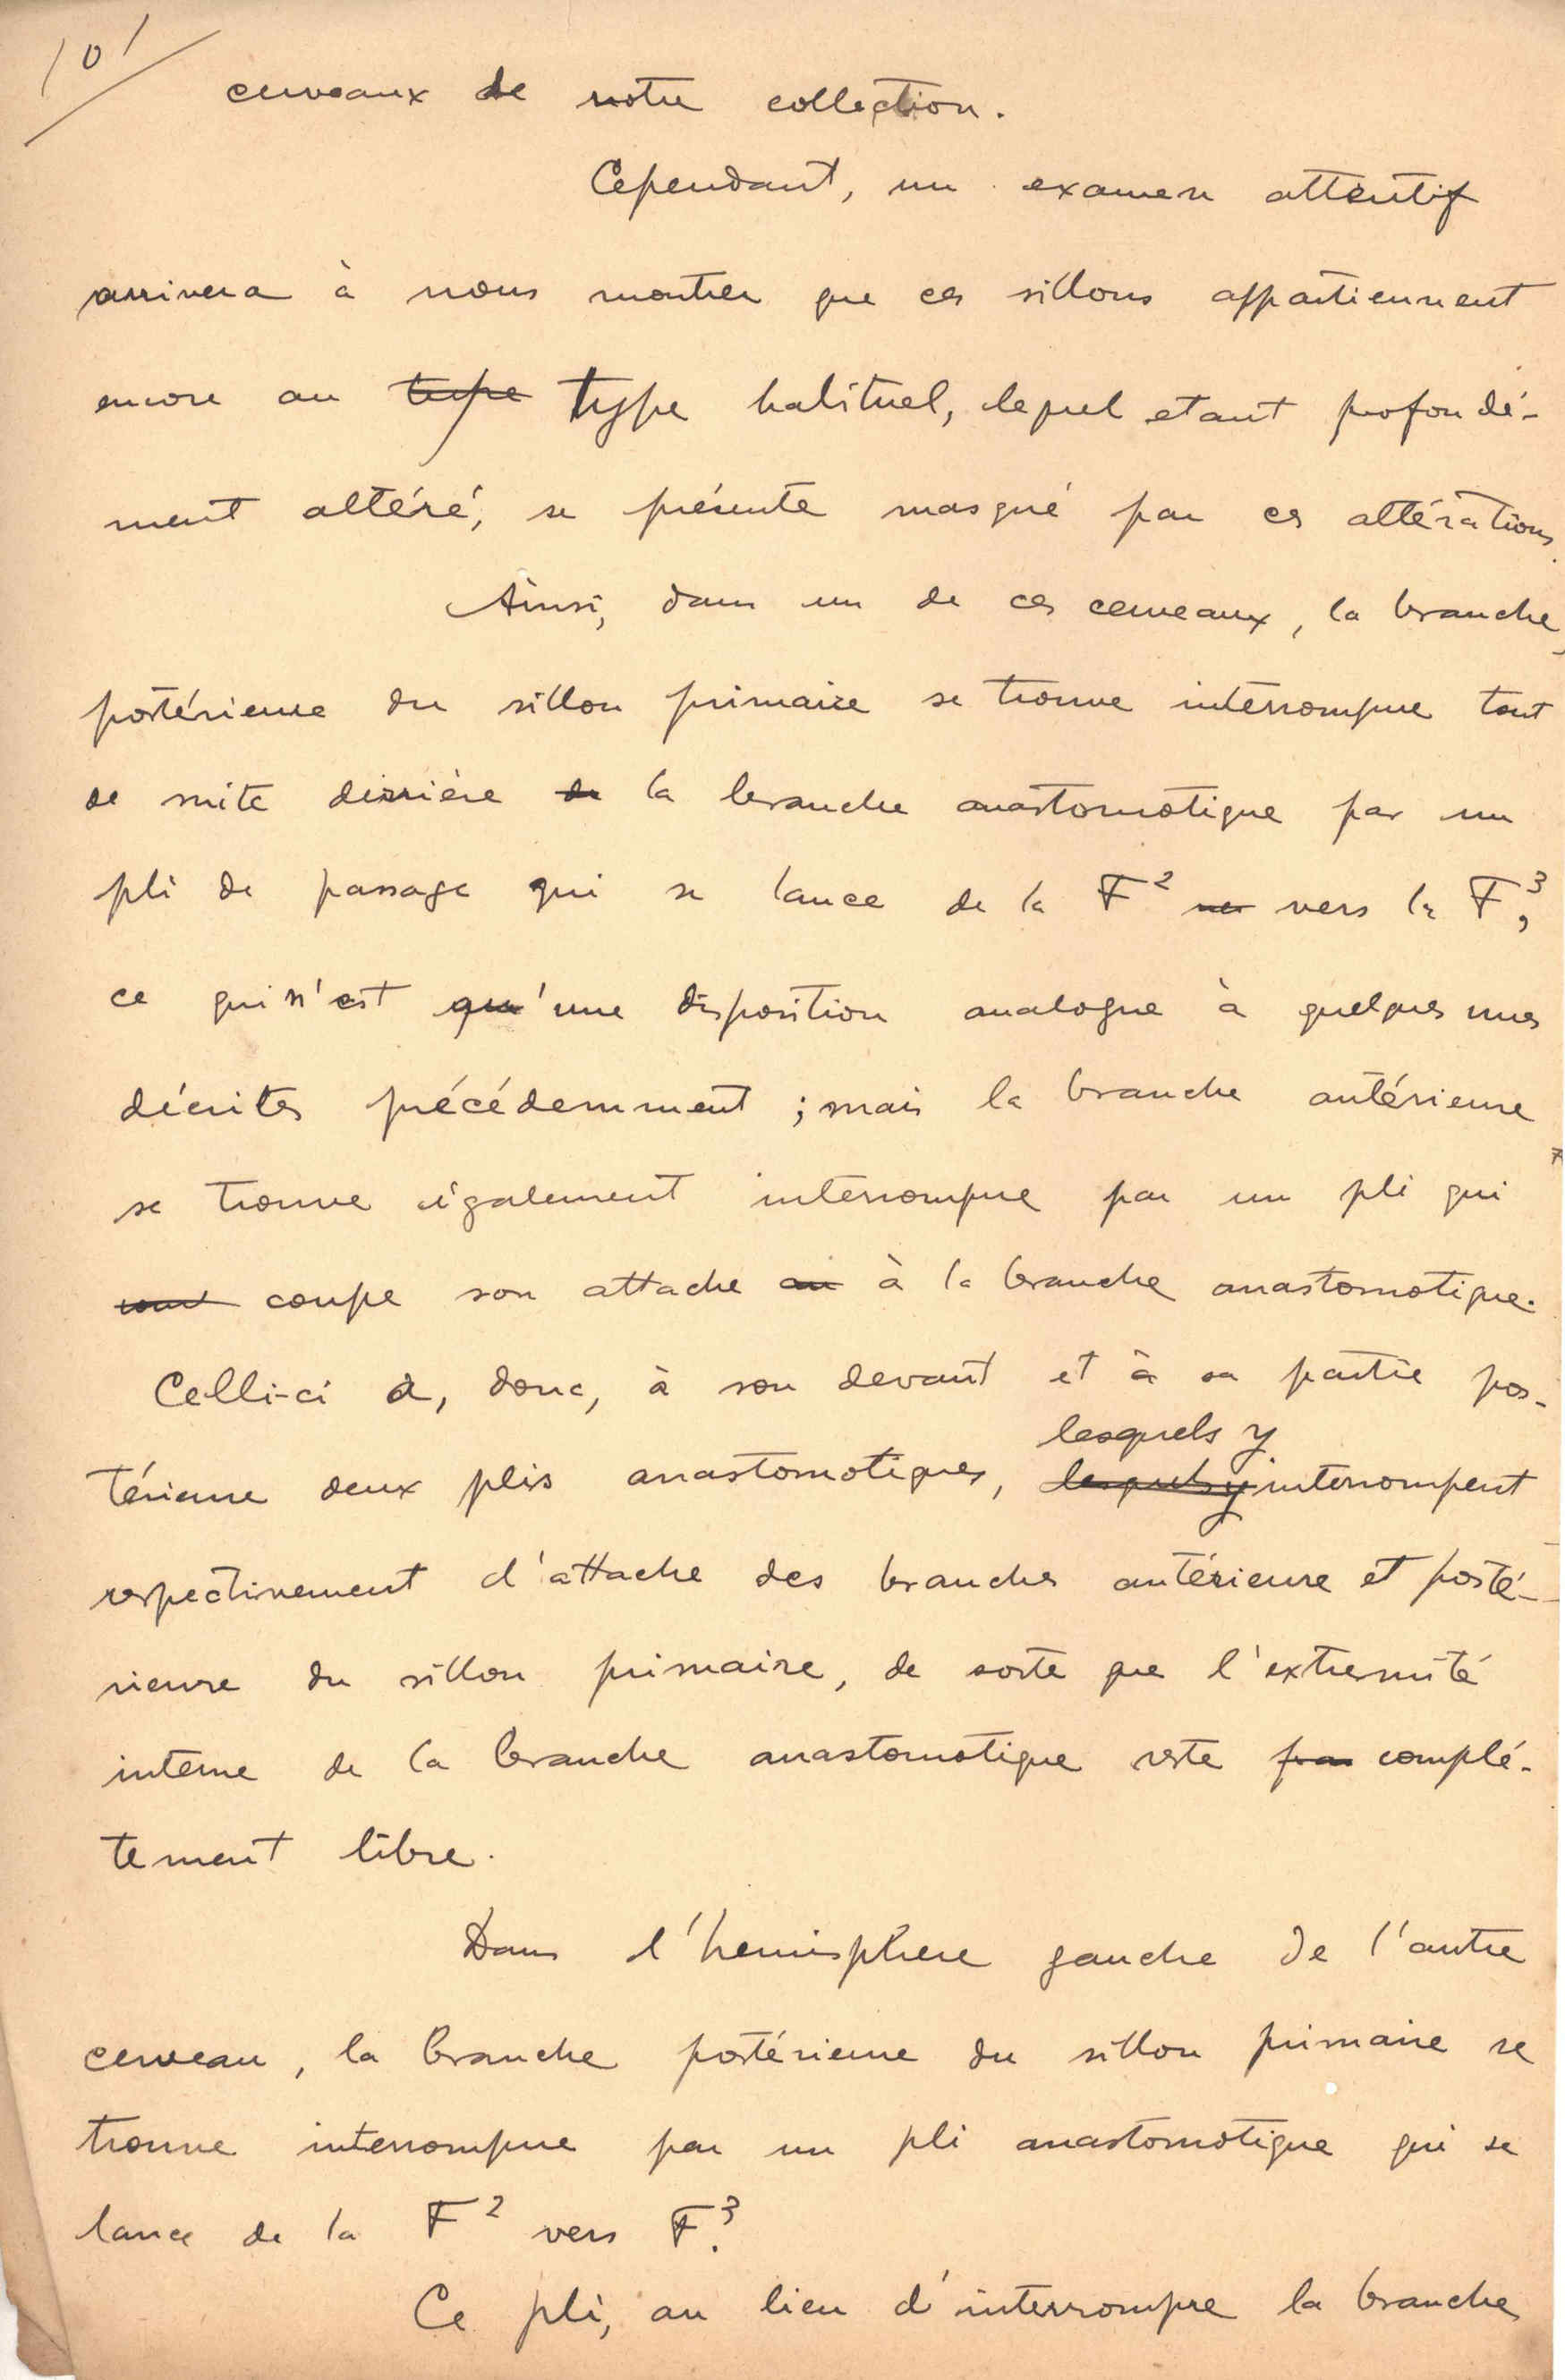 101
cerveaux de notre collection.
Cependant, un examen attentif
arrivera à nous montrer que ces sillons appartiennent
encore au type type habituel, lequel etant profondé-
ment altéré, se présente masqué par ces altérations.
Ainsi, dans un de ces cerveaux, la branche
postérieure du sillon primaire se trouve interrompue tout
de suite dérrière de la branche anastomotique par un
pli de passage qui se lance de la F² ver vers la F³,
ce qui n'est qu'une disposition analogue à quelques unes
décrites précédemment ; mais la branche antérieure
se trouve également interrompue par un pli qui
coupe son attache au à la branche anastomotique.
Celli-ci a, donc, à son devant et à sa partie pos-
lesquels y
térieure deux plis anastomotiques, lesquels y interrompent
respectivement d'attache des branches antérieure et posté-
rieure du sillon primaire, de sorte que l'extremité
interne de la branche anastomotique reste complé-
tement libre.
Dans l'hemisphere gauche de l'autre
cerveau, la branche postérieure du sillon primaire se
trouve interrompue par un pli anastomotique qui se
lance de la F² vers F³.
Ce pli, au lieu d'interrompre la branche